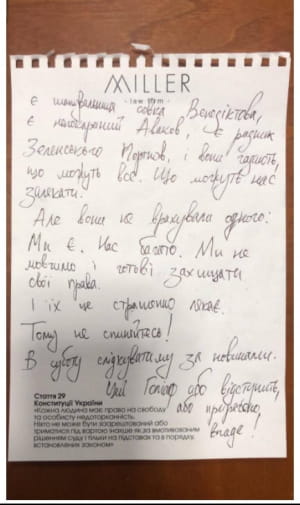 MILLER
law firm
Є шанувальниця совка Венедіктова,
Є непотоплюваний Аваков, є радник
Зеленського Портнов, і вони гадають,
що можуть все. Що можуть нас
залякати.
Але вони не врахували одного:
Ми є. Нас багато. Ми не
мовчимо і готові захищати
свої права.
І їх це страшенно лякає.
Тому не спиняйтесь!
В суботу слідкуватиму за новинами.
Цей Голіаф або відступить,
або
впаде!
Стаття 29
Конституції України
«Кожна людина має право на свободу
та особисту недоторканність.
Ніхто не може бути заарештований або
триматися під вартою інакше як за вмотивованим
рішенням суду і тільки на підставах та в порядку,
встановлених законом»